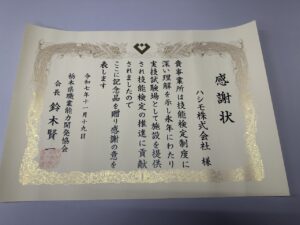 感謝状
ハシモ株式会社 様
貴事業所は技能検定制度に
深い理解を示し永年にわたり
実技試験場として施設を提供
され技能検定の推進に貢献
されましたので
ここに記念品を贈り感謝の意を
表します
令和七年十一月十九日
栃木県職業能力開発協会
会長 鈴木賢一